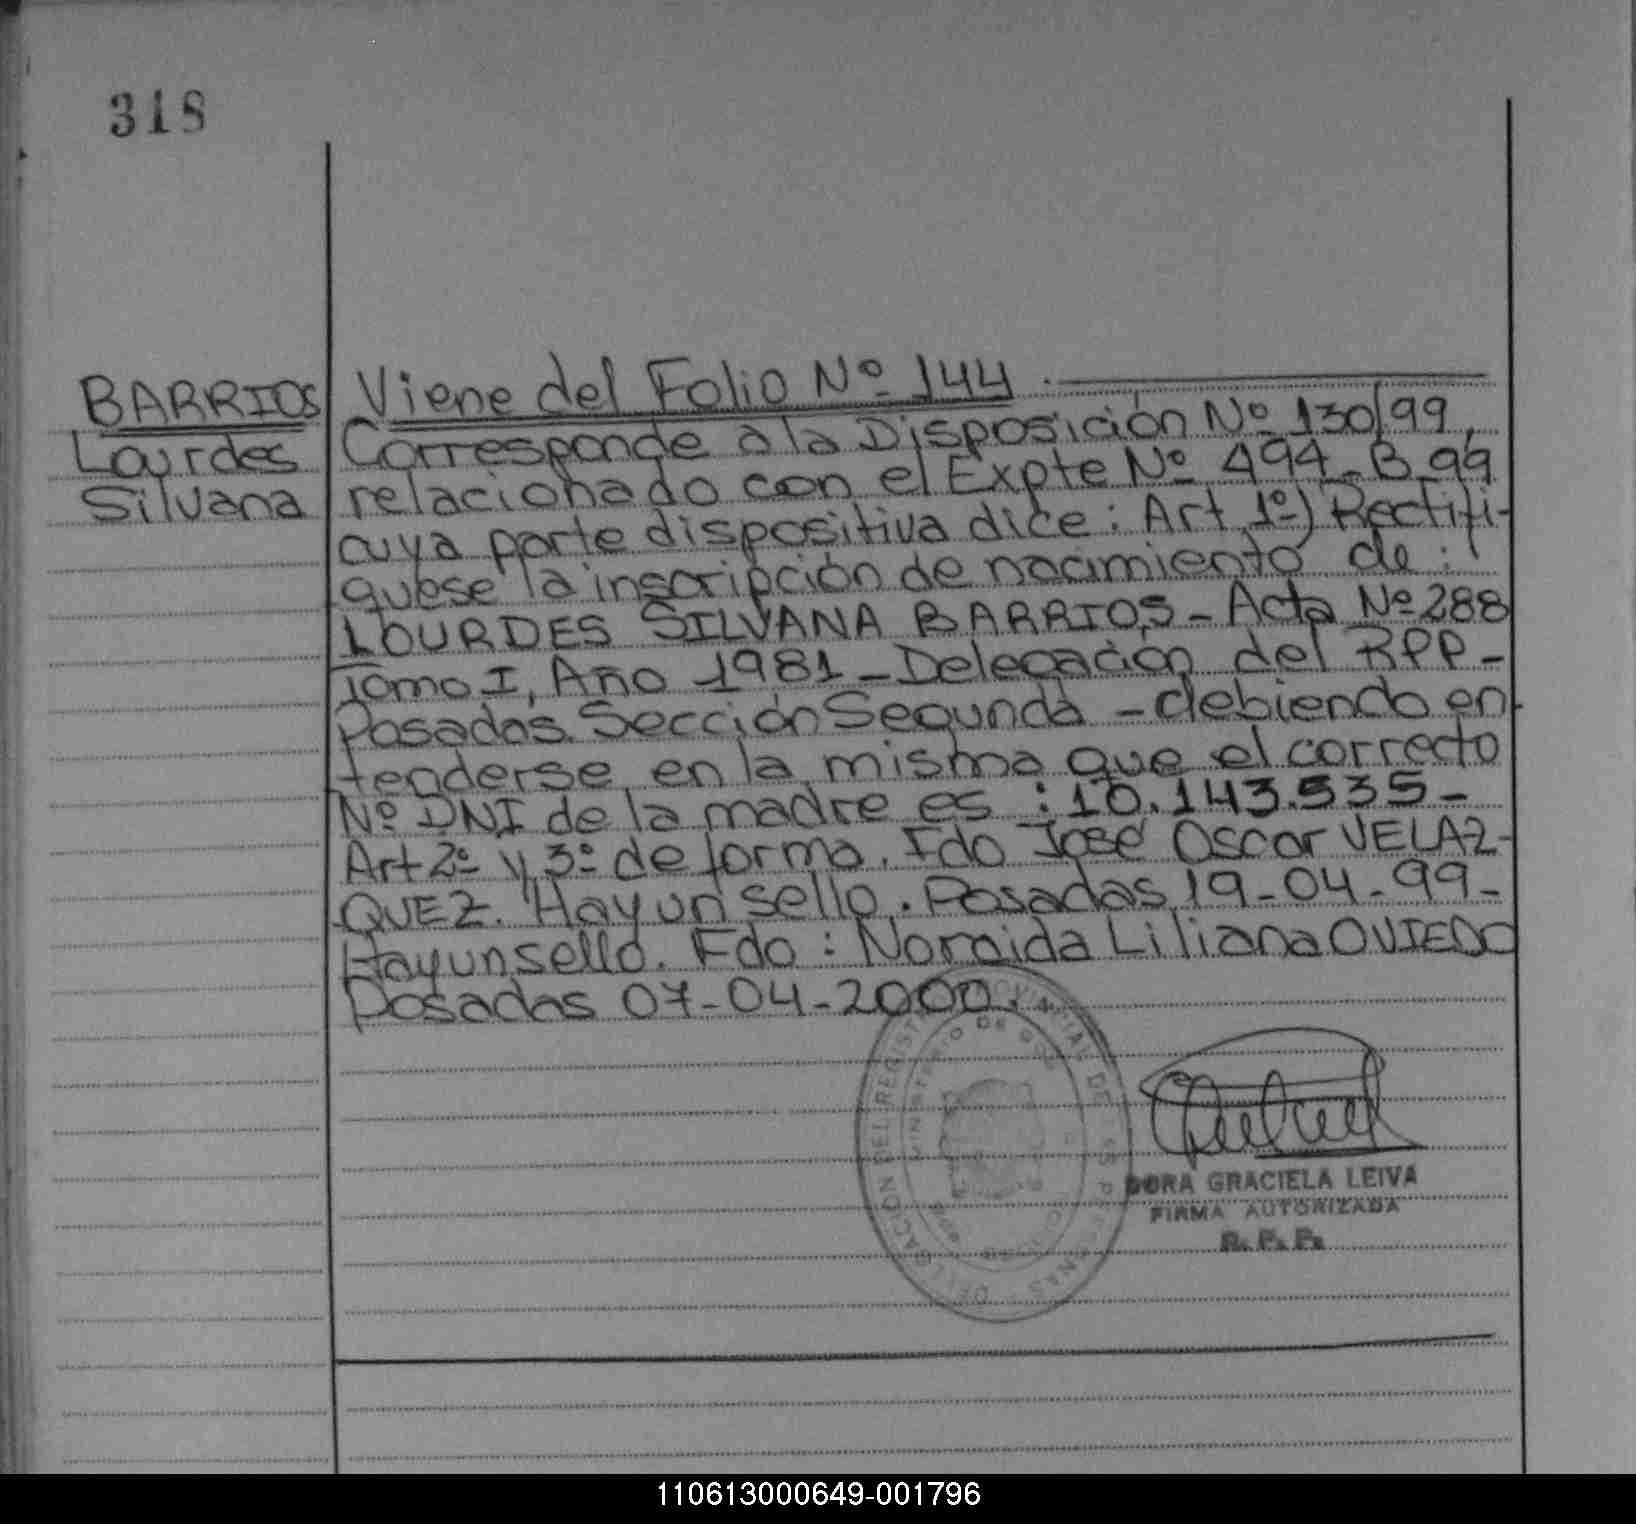 318
BARRIOS
Lourdes
Silvana
Viene del Folio Nº 144.
Corresponde a la Disposición Nº 130/99,
relacionado con el Expte Nº 494-B-99
cuya parte dispositiva dice: Art 1º) Rectifi-
quese la inscripción de nacimiento de:
LOURDES SILVANA BARRIOS - Acta Nº 288
Tomo I, Año 1981 - Delegación del RPP -
Posadas. Sección Segunda - debiendo en-
tenderse en la misma que el correcto
Nº DNI de la madre es: 10.143.535 -
Art 2º y 3º de forma. Fdo José Oscar VELAZ-
QUEZ. Hay un sello. Posadas 19-04-99-
Hay un sello. Fdo: Noraida Liliana OVIEDO
Posadas 07-04-2000.
DELEGACION DEL REGISTRO PROVINCIAL DE LAS PERSONAS
MINISTERIO DE
DORA GRACIELA LEIVA
FIRMA AUTORIZADA
R. P. P.
110613000649-001796